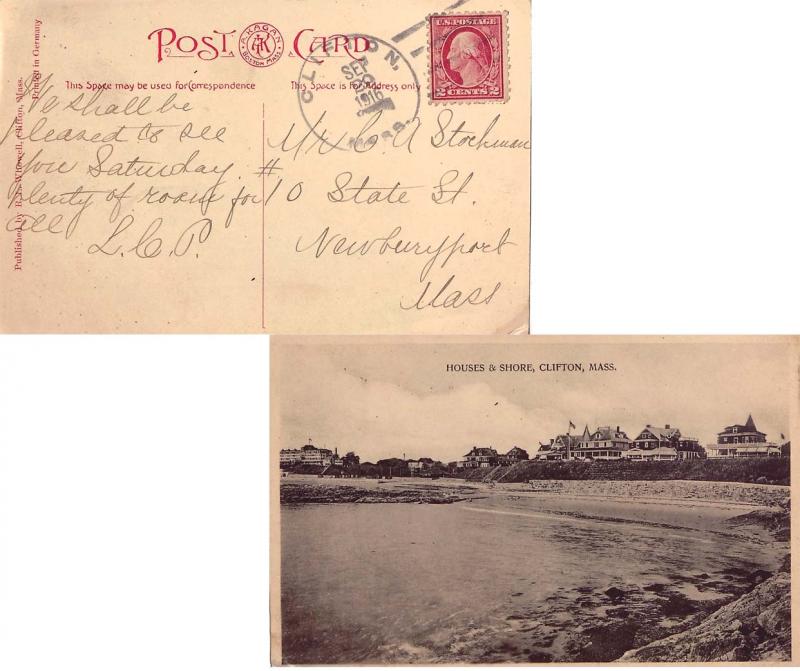 POST CARD
A. KAGAN
BOSTON MASS.
CLIFTON,
SEP
1916
MASS.
U.S. POSTAGE
2 CENTS 2
This Space may be used for Correspondence
This Space is for Address only
Published by R. L. Whitwell, Clifton, Mass.
Printed in Germany
We shall be
pleased to see
you Saturday.
plenty of room for
all
L.C.P.
Mr. C A Stockman
# 10 State St.
Newburyport
Mass
HOUSES & SHORE, CLIFTON, MASS.